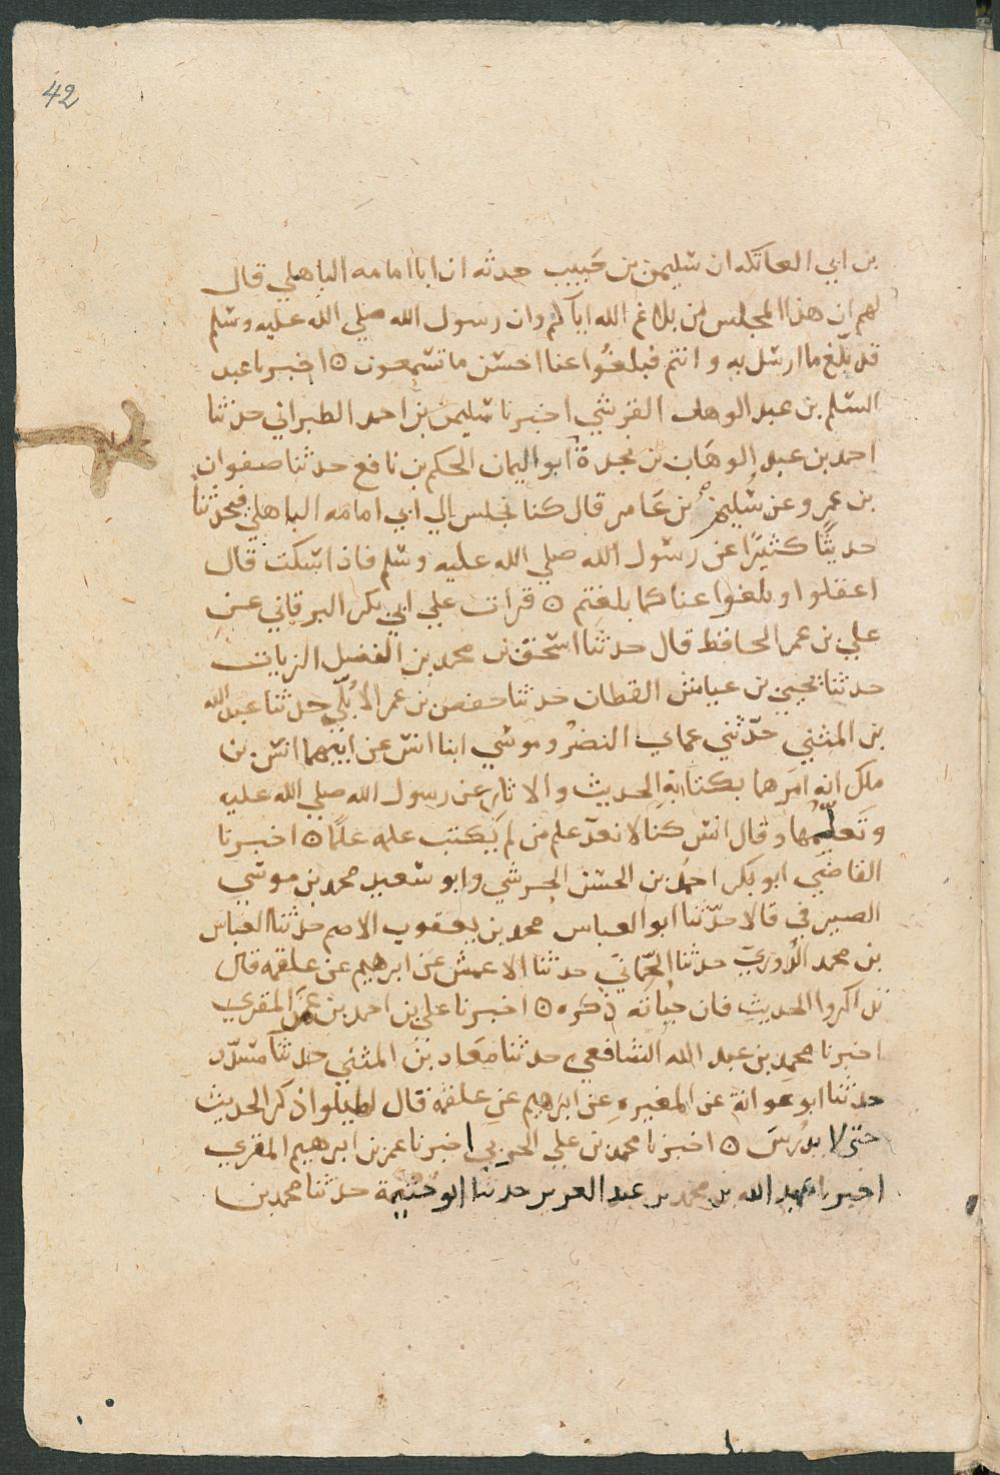 42
بن ابي العاتكه ان سليمن بن حبيب حدثه ان ابا امامه الباهلي قال
لهم ان هذا المجلس من بلاغ الله اياكم وان رسول الله صلي الله عليه وسلم
قد بلّغ ما ارسل به وانتم فبلغوا عنا احسن ما تسمعون ٥ اخبرنا عبد
السلم بن عبد الوهاب القرشي اخبرنا سليمن بن احمد الطبراني حدثنا
احمد بن عبد الوهاب بن نجدة ابو اليمان الحكم بن نافع حدثنا صفوان
بن عمرو عن سُليم بن عَامر قال كنا نجلس الي ابي امامه الباهلي فيحدثنا
حديثًا كثيرًا عن رسول الله صلي الله عليه وسلم فاذا سكت قال
اعقلوا وبلغوا عنا كما بلغتم ٥ قرات علي ابي بكر البرقاني عن
علي بن عمر الحافظ قال حدثنا اسحق بن محمد بن الفضل الزيات
حدثنا يحيي بن عياش القطان حدثنا حفص بن عمر الابُلّي حدثنا عبد الله
بن المثني حدّثني عماي النضرُ وموسي ابنا انس عن ابيهما انس بن
ملك انه امَرهما بكتابةِ الحديث والاثار عن رسول الله صلي الله عليه
وتَعلّمها وقال انس كنا لا نعدّ علم من لم يَكتب علمه علمًا ٥ اخبرنا
القاضي ابو بكر احمَد بن الحسن الحرشي وابو سعيد محمد بن موسي
الصيرفي قالا حدّثنا ابو العباس محمد بن يعقوب الاصم حدثنا العباس
بن محمد الدُوريّ حدثنا الحمّاني حدثنا الاعمش عن ابرهيم عن علقمه قال
تذاكروا الحديث فان حياته ذكره ٥ اخبرنا علي بن احمد بن عمَر المقري
اخبرنا محمد بن عبد الله الشافعي حدثنا معَاذ بن المثني حدثنا مسدّد
حدثنا ابو عوانة عن المغيرهِ عن ابرهيم عن علقمة قال اطيلوا ذكر الحديث
حتى لا يدرُسَ ٥ اخبرنا محمد بن علي الحربي اخبرنا عمر بن ابرهيم المقري
اخبرنا عبد الله بن محمد بن عبد العزيز حدثنا ابو خَيْثمة حدثنا محمد بن